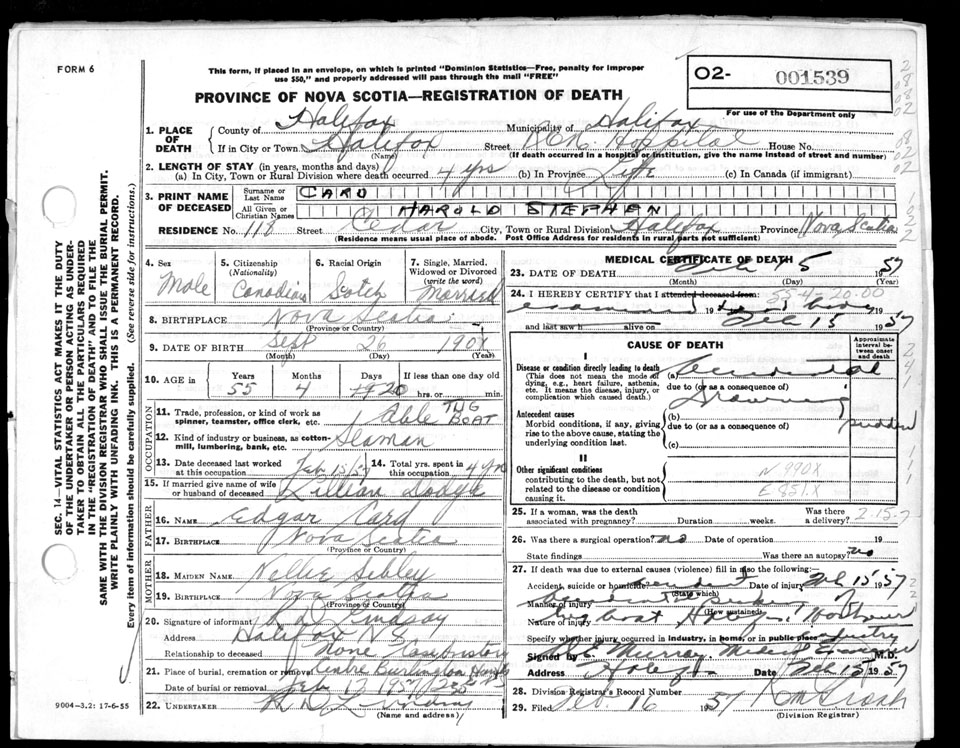 FORM 6
This form, if placed in an envelope, on which is printed "Dominion Statistics—Free, penalty for improper
use $50," and properly addressed will pass through the mail "FREE"
02- 001539
For use of the Department only
PROVINCE OF NOVA SCOTIA—REGISTRATION OF DEATH
1. PLACE OF DEATH County of Halifax Municipality of Halifax
If in City or Town Halifax (Name) Street Hospital House No.
(If death occurred in a hospital or institution, give the name instead of street and number)
2. LENGTH OF STAY (in years, months and days)
(a) In City, Town or Rural Division where death occurred 4 yrs (b) In Province Life (c) In Canada (if immigrant)
3. PRINT NAME OF DECEASED Surname or Last Name CARD
All Given or Christian Names HAROLD STEPHEN
RESIDENCE No. 118 Street Cedar City, Town or Rural Division Halifax Province Nova Scotia
(Residence means usual place of abode. Post Office Address for residents in rural parts not sufficient)
4. Sex Male
5. Citizenship (Nationality) Canadian
6. Racial Origin Scotch
7. Single, Married, Widowed or Divorced (write the word) Married
8. BIRTHPLACE Nova Scotia (Province or Country)
9. DATE OF BIRTH Sept 26 190 (Month) (Day) (Year)
10. AGE in Years 55 Months 4 Days 20 If less than one day old hrs. or min.
OCCUPATION
11. Trade, profession, or kind of work as spinner, teamster, office clerk, etc. Able TUG BOAT
12. Kind of industry or business, as cotton-mill, lumbering, bank, etc. Seaman
13. Date deceased last worked at this occupation Feb 15/57
14. Total yrs. spent in this occupation 4 yrs
15. If married give name of wife or husband of deceased Lillian Dodge
FATHER
16. NAME Edgar Card
17. BIRTHPLACE Nova Scotia (Province or Country)
MOTHER
18. MAIDEN NAME Nellie Sibley
19. BIRTHPLACE Nova Scotia (Province or Country)
20. Signature of informant Lindsay
Address Halifax N S
Relationship to deceased None
21. Place of burial, cremation or removal Centre Burlington Hants
Date of burial or removal Feb 17 1957
22. UNDERTAKER (Name and address)
MEDICAL CERTIFICATE OF DEATH
23. DATE OF DEATH Feb 15 1957
(Month) (Day) (Year)
24. I HEREBY CERTIFY that I attended deceased from: 55-4-20.00
examined 19 body
and last saw h alive on Feb 15 1957
CAUSE OF DEATH
Approximate interval between onset and death
I
Disease or condition directly leading to death (This does not mean the mode of dying, e.g., heart failure, asthenia, etc. It means the disease, injury, or complication which caused death.)
(a) Accidental
due to (or as a consequence of)
Drowning
Antecedent causes
Morbid conditions, if any, giving rise to the above cause, stating the underlying condition last.
(b)
due to (or as a consequence of) sudden
(c)
II
Other significant conditions contributing to the death, but not related to the disease or condition causing it.
N 990X
E 851.X
25. If a woman, was the death associated with pregnancy? Duration weeks. Was there a delivery? 2.15.7
26. Was there a surgical operation? no Date of operation 19
State findings Was there an autopsy? no
27. If death was due to external causes (violence) fill in also the following:—
Accident, suicide or homicide? Accident (State which) Date of injury Feb 15 1957
Manner of injury (How sustained)
Nature of injury boat
Specify whether injury occurred in industry, in home, or in public place industry
Signed by Murray, Medical Examiner M.D.
Address Halifax Date Feb 15 1957
28. Division Registrar's Record Number
29. Filed Feb. 16 1957
(Division Registrar)
9004-3.2: 17-6-55
SEC. 14—VITAL STATISTICS ACT MAKES IT THE DUTY
OF THE UNDERTAKER OR PERSON ACTING AS UNDER-
TAKER TO OBTAIN ALL THE PARTICULARS REQUIRED
IN THE "REGISTRATION OF DEATH" AND TO FILE THE
SAME WITH THE DIVISION REGISTRAR WHO SHALL ISSUE THE BURIAL PERMIT.
WRITE PLAINLY WITH UNFADING INK. THIS IS A PERMANENT RECORD.
Every item of information should be carefully supplied. (See reverse side for instructions.)